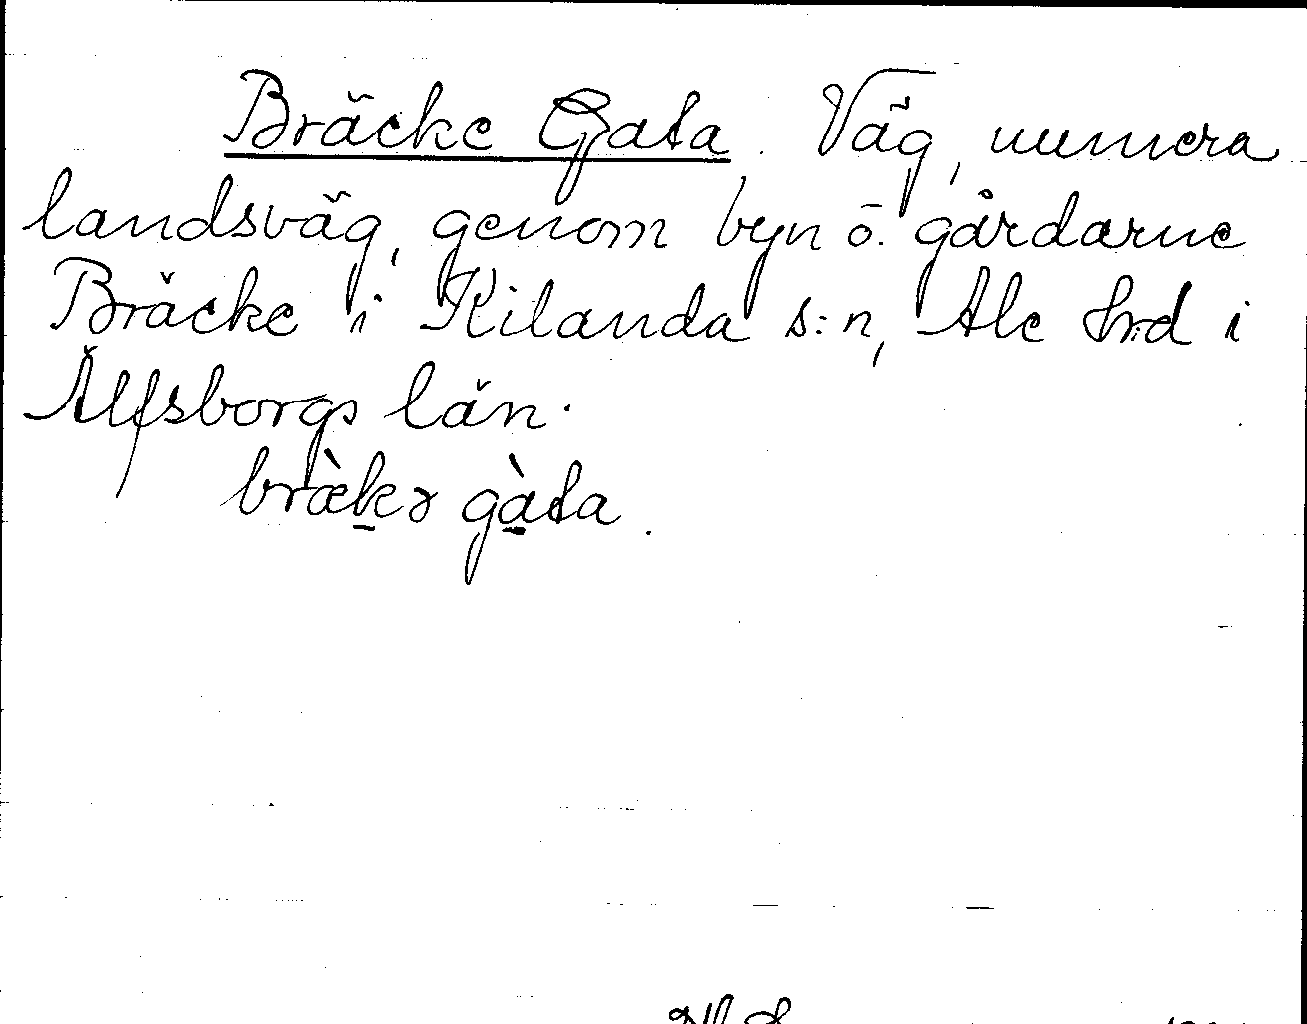 Bräcke Gata. Väg, numera
landsväg, genom byn o. gårdarne
Bräcke i Kilanda s:n, Ale hrd i
Älfsborgs län.
bræ̀kə gàta.